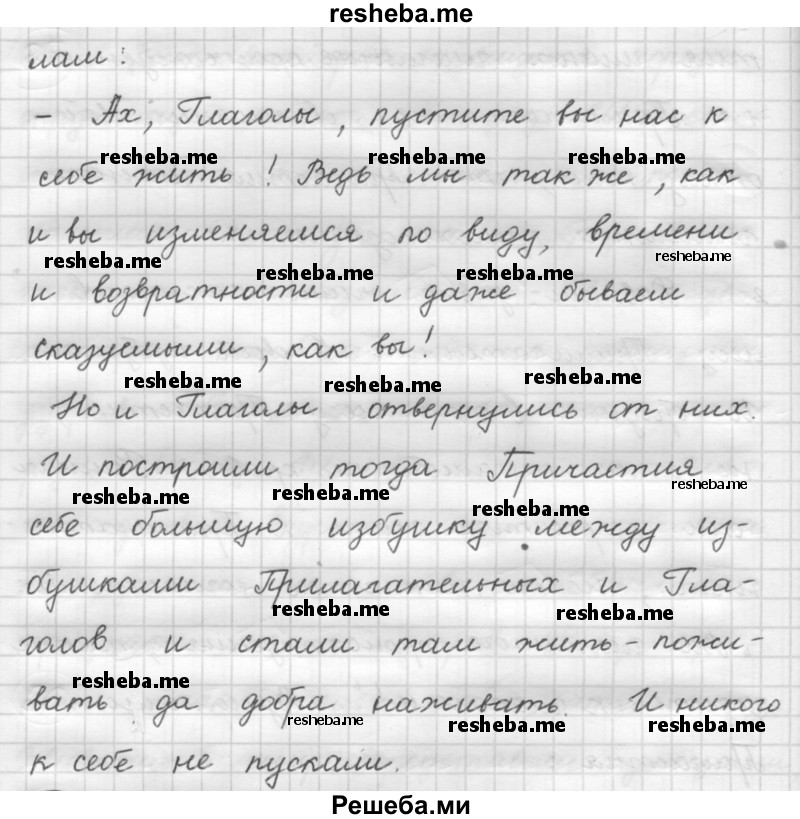 resheba.me
лам:
- Ах, Глаголы, пустите вы нас к
resheba.me resheba.me resheba.me
себе жить! Ведь мы так же, как
и вы изменяемся по виду, времени
resheba.me resheba.me resheba.me resheba.me
и возвратности и даже бываем
сказуемыми, как вы!
resheba.me resheba.me resheba.me
Но и Глаголы отвернулись от них.
И построили тогда Причастия
resheba.me resheba.me resheba.me resheba.me
себе большую избушку между из-
бушками Прилагательных и Гла-
resheba.me resheba.me
голов и стали там жить - пожи-
resheba.me
вать да добра наживать. И никого
resheba.me resheba.me resheba.me
к себе не пускали.
Решеба.ми